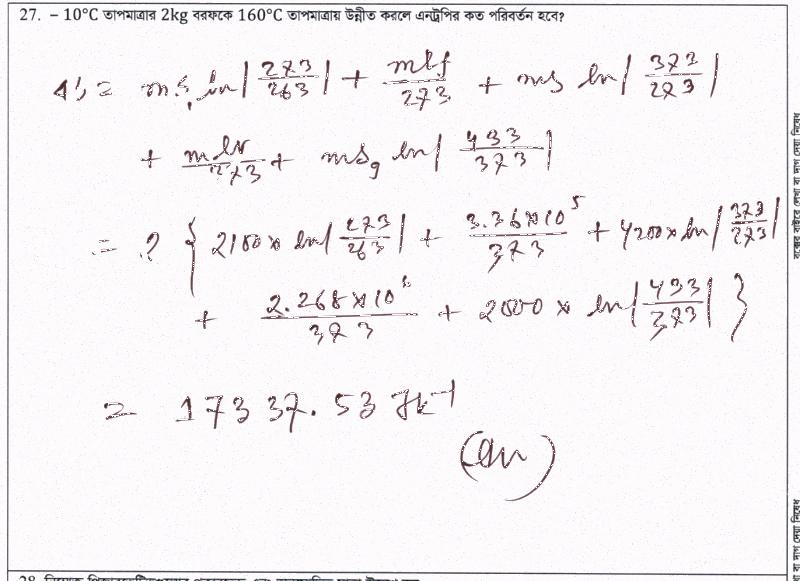 27. – 10°C তাপমাত্রার 2kg বরফকে 160°C তাপমাত্রায় উন্নীত করলে এনট্রপির কত পরিবর্তন হবে?
ΔS = ms, ln|273/263| + mlf/273 + ms ln|373/273|
+ mlv/373 + msg ln|433/373|
= 2 { 2100 × ln|273/263| + 3.36×10⁵/373 + 4200 × ln|373/273|
+ 2.268×10⁶/373 + 2000 × ln|433/373| }
= 17337.53 JK⁻¹
(Ans)